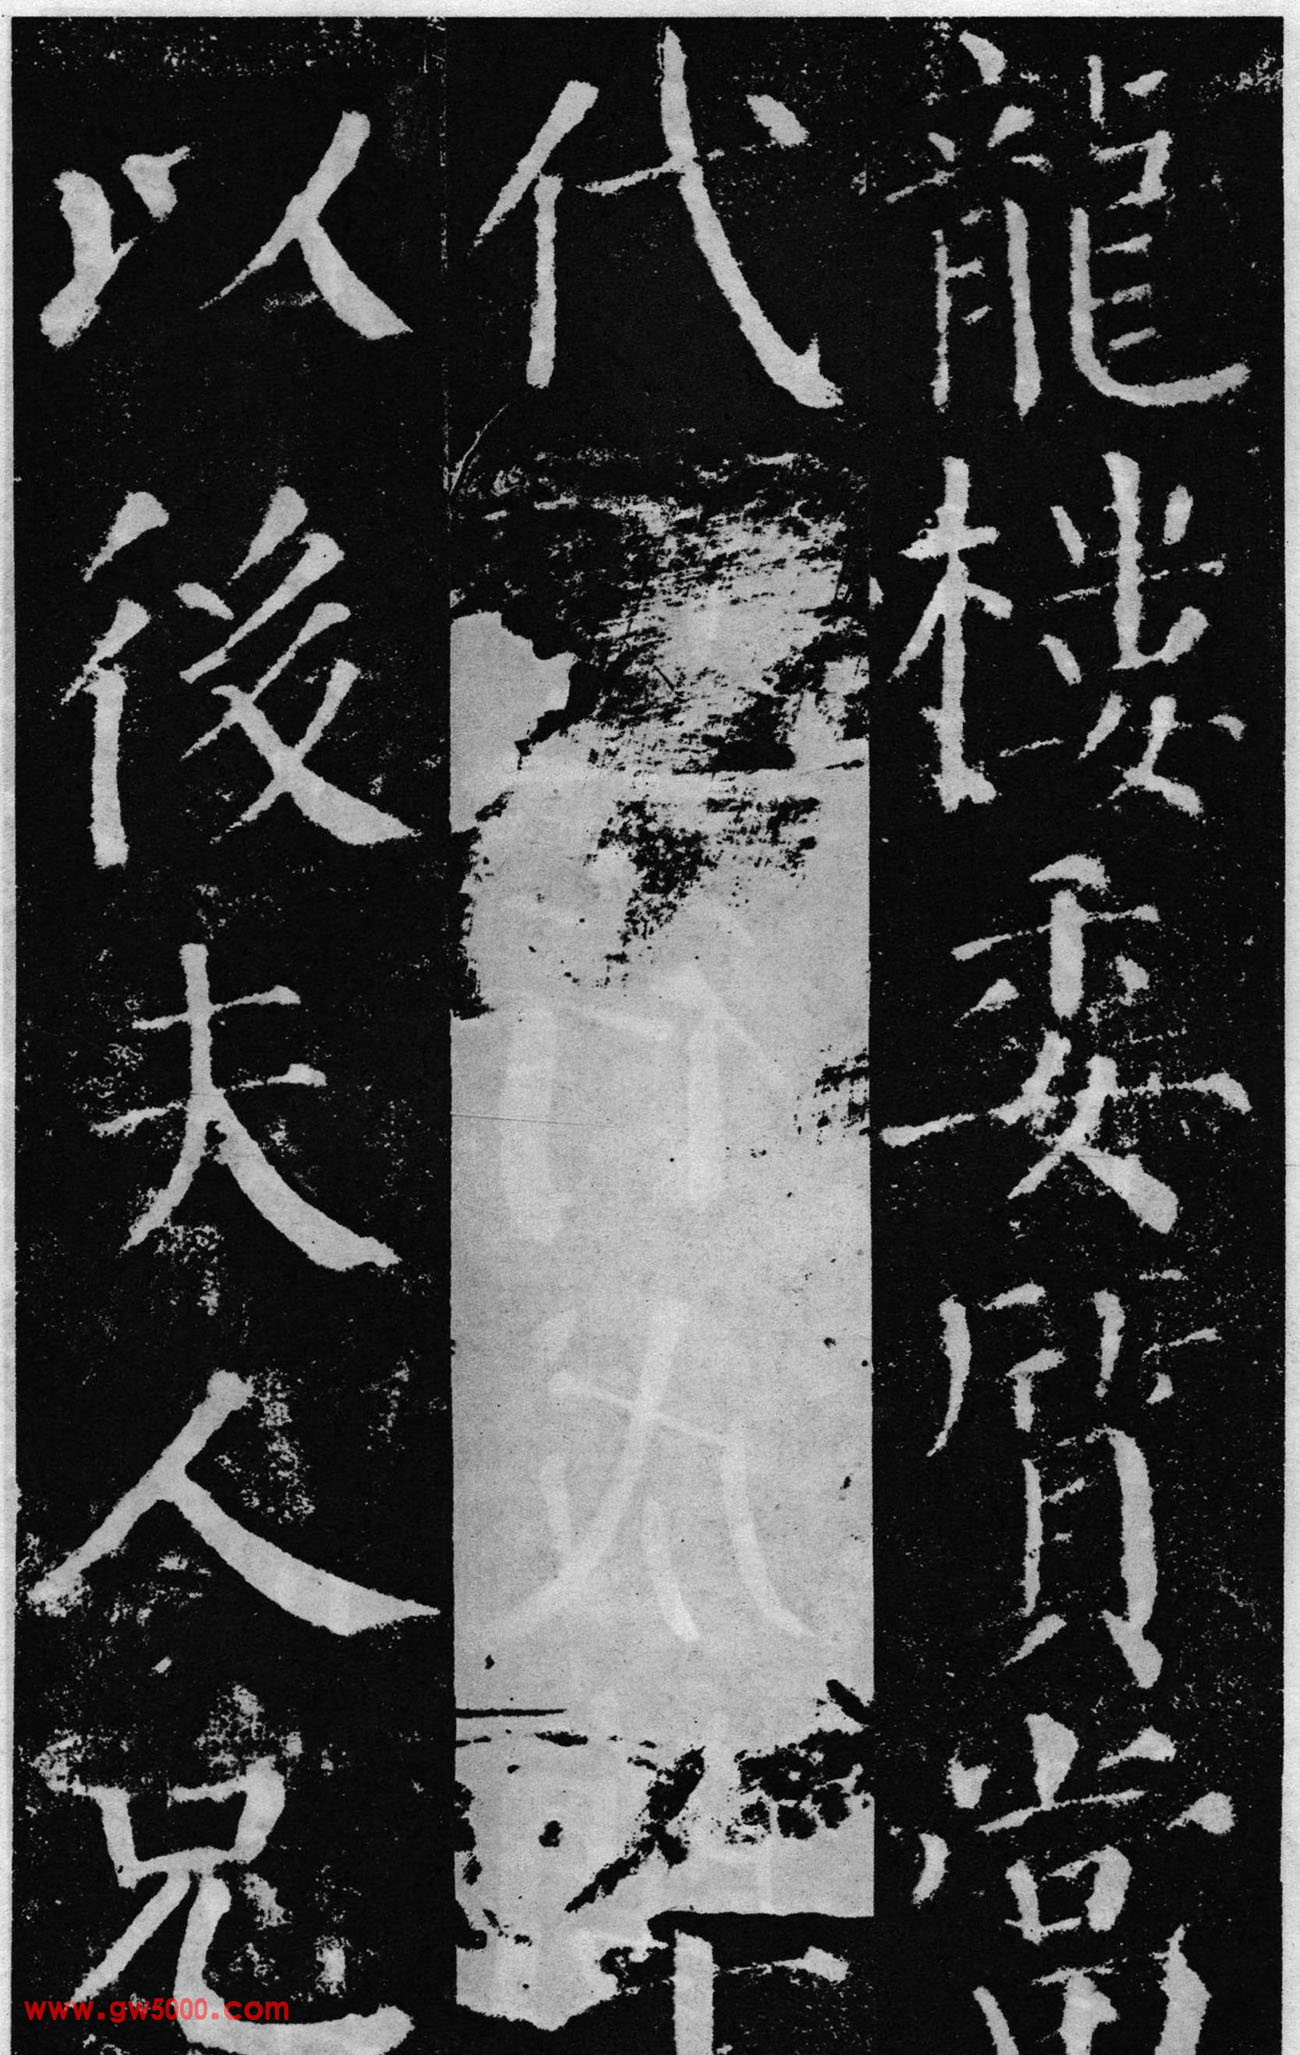 龍樓委質當
代
以後夫人兄
www.gw5000.com